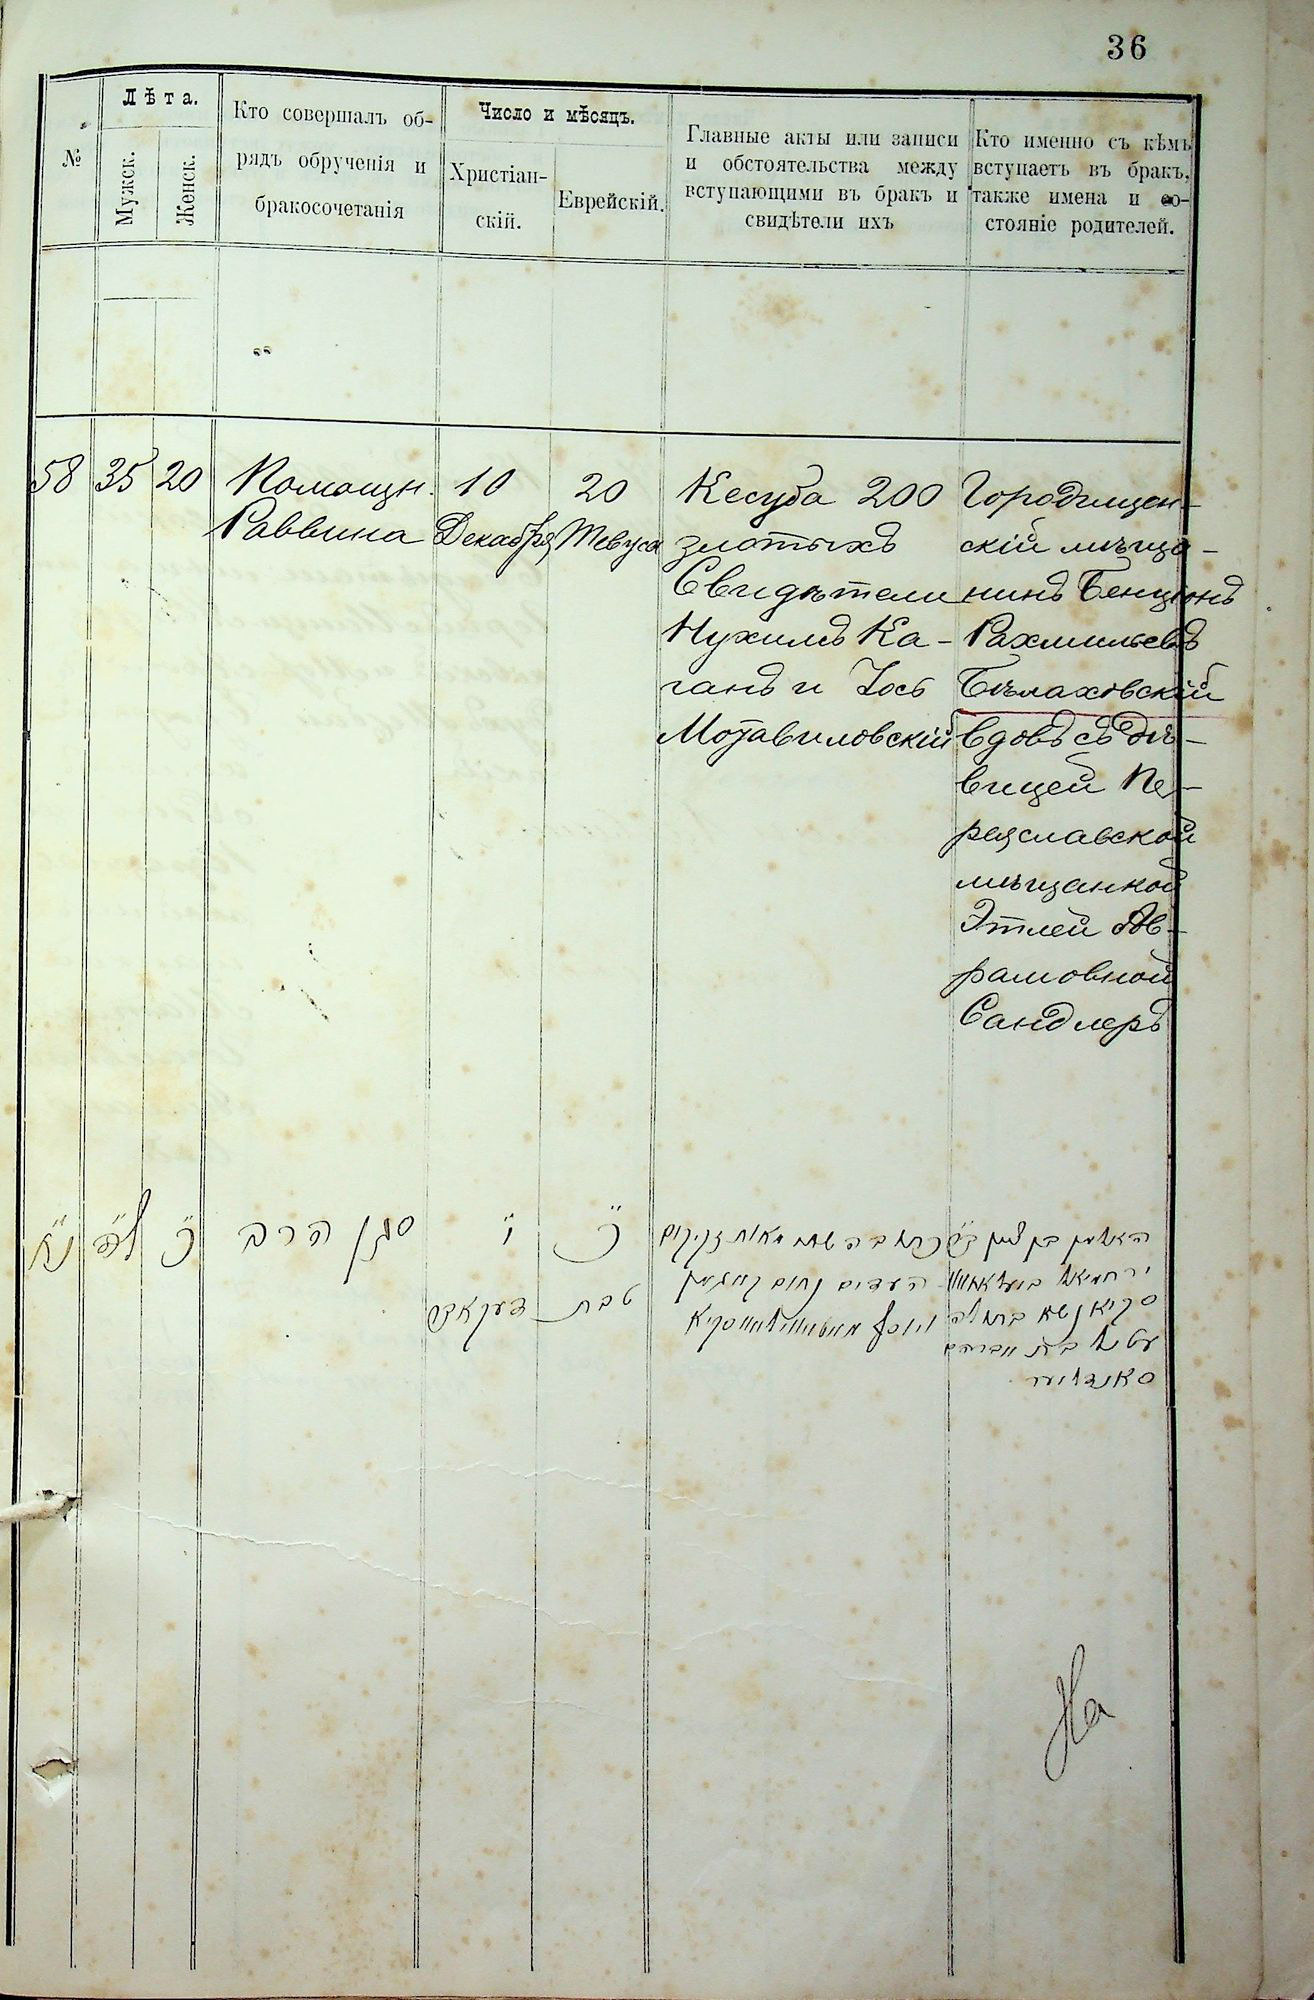 36
№
Лѣта.
Мужск.
Женск.
Кто совершалъ об-
рядъ обрученія и
бракосочетанія
Число и мѣсяцъ.
Христіан-
скій.
Еврейскій.
Главные акты или записи
и обстоятельства между
вступающими въ бракъ и
свидѣтели ихъ
Кто именно съ кѣмъ
вступаетъ въ бракъ,
также имена и со-
стояніе родителей.
58
35
20
Помощн.
Раввина
10
Декабря
20
Тевуса
Кесуба 200
злотыхъ
Свидѣтели
Нухимъ Ка-
ганъ и Іось
Могавиловскій
Городищен-
скій мѣща-
нинъ Бенціонъ
Рахмильевъ
Бѣлаховскій
вдовъ съ дѣ-
вицей Пе-
реяславской
мѣщанкой
Этлей Ав-
рамовной
Сандлеръ
נ״ח
ל״ה
כ״
סגן הרב
י״
דעקאבר
כ״
טבת
העדים נחום
סאנדלער
На